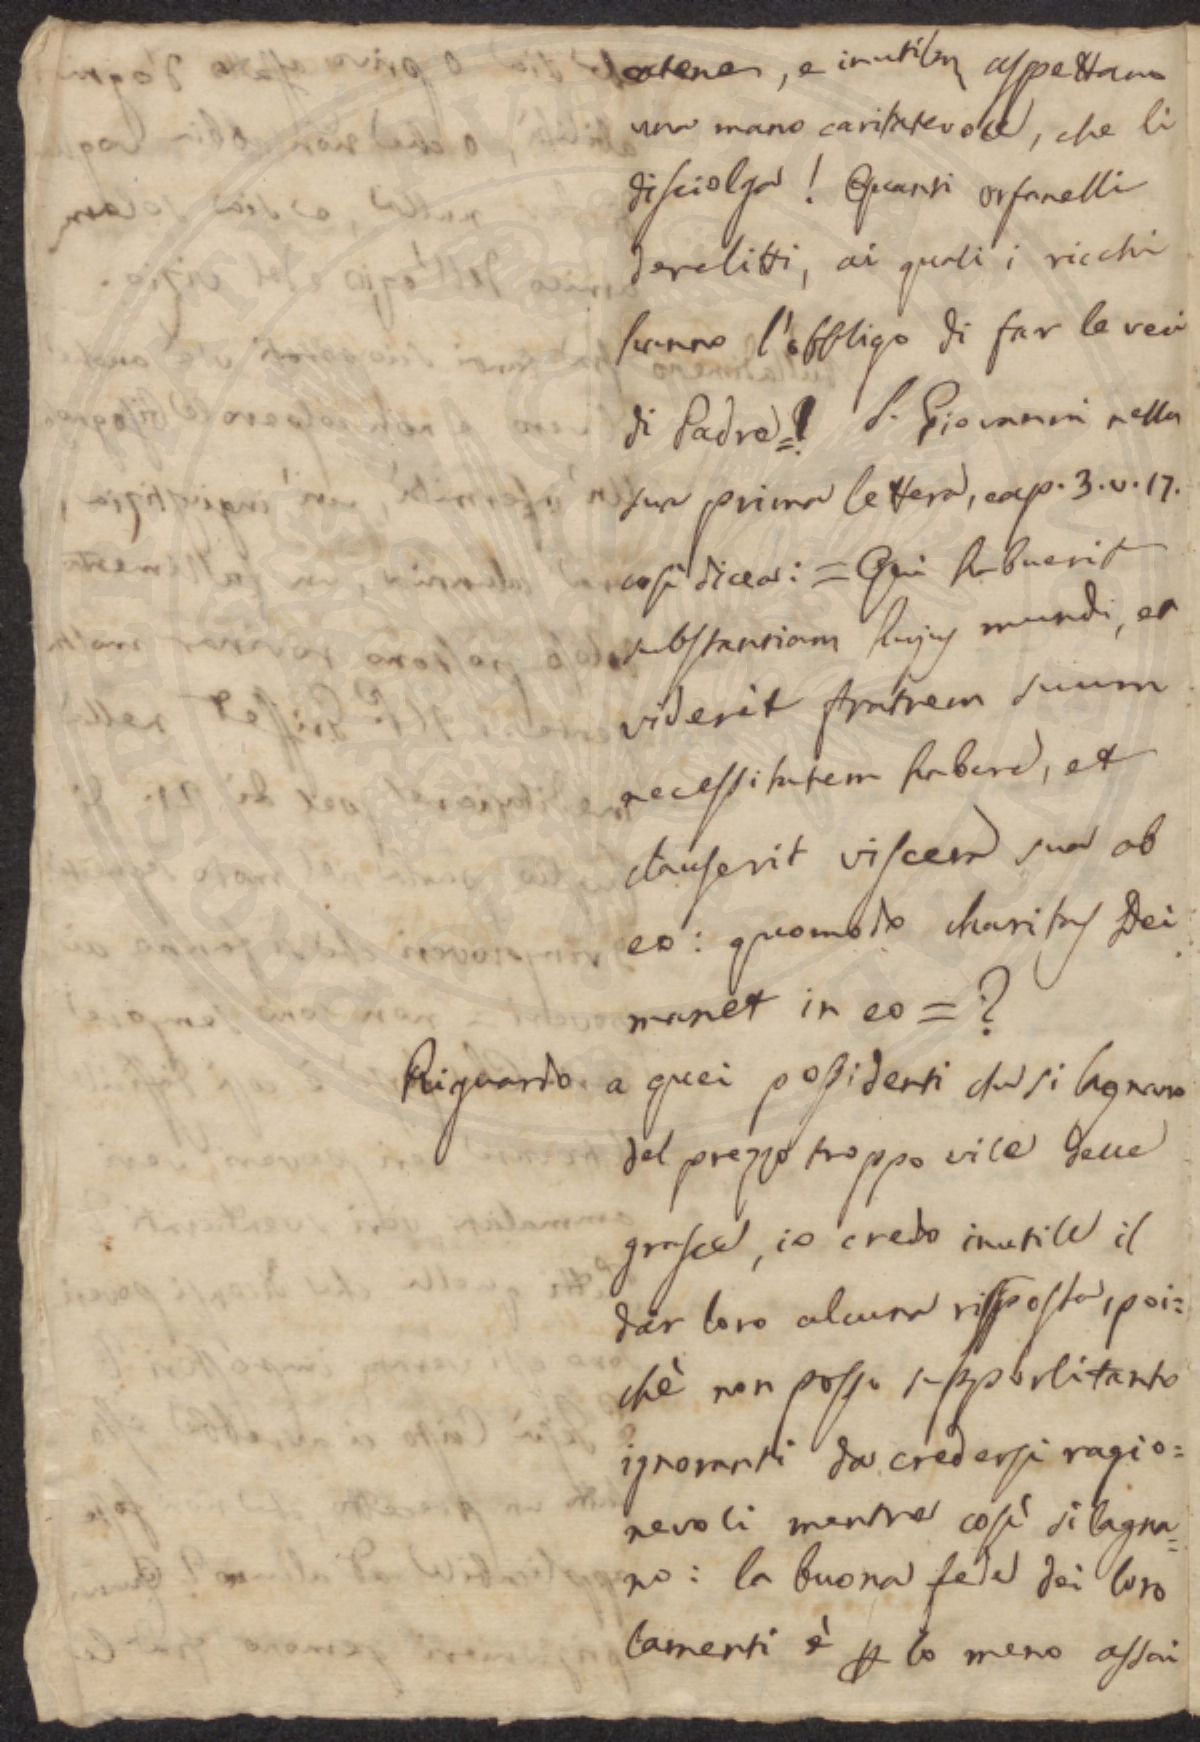 catene, e inutilm aspettano
una mano caritatevole, che li
disciolga! Quanti orfanelli
derelitti, ai quali i ricchi
hanno l'obbligo di far le veci
di Padre=! S. Giovanni nella
sua prima lettera, cap. 3. v. 17.
così dicea: = Qui habuerit
substantiam hujus mundi, et
viderit fratrem suum
necessitatem habere, et
clauserit viscera sua ab
eo: quomodo charitas Dei
manet in eo =?
Riguardo a quei possidenti che si lagnano
del prezzo troppo vile delle
grasce, io credo inutile il
dar loro alcuna risposta, poi=
chè non posso supporli tanto
ignoranti da credersi ragio=
nevoli mentre così si lagna=
no: la buona fede dei loro
lamenti è lo meno assai